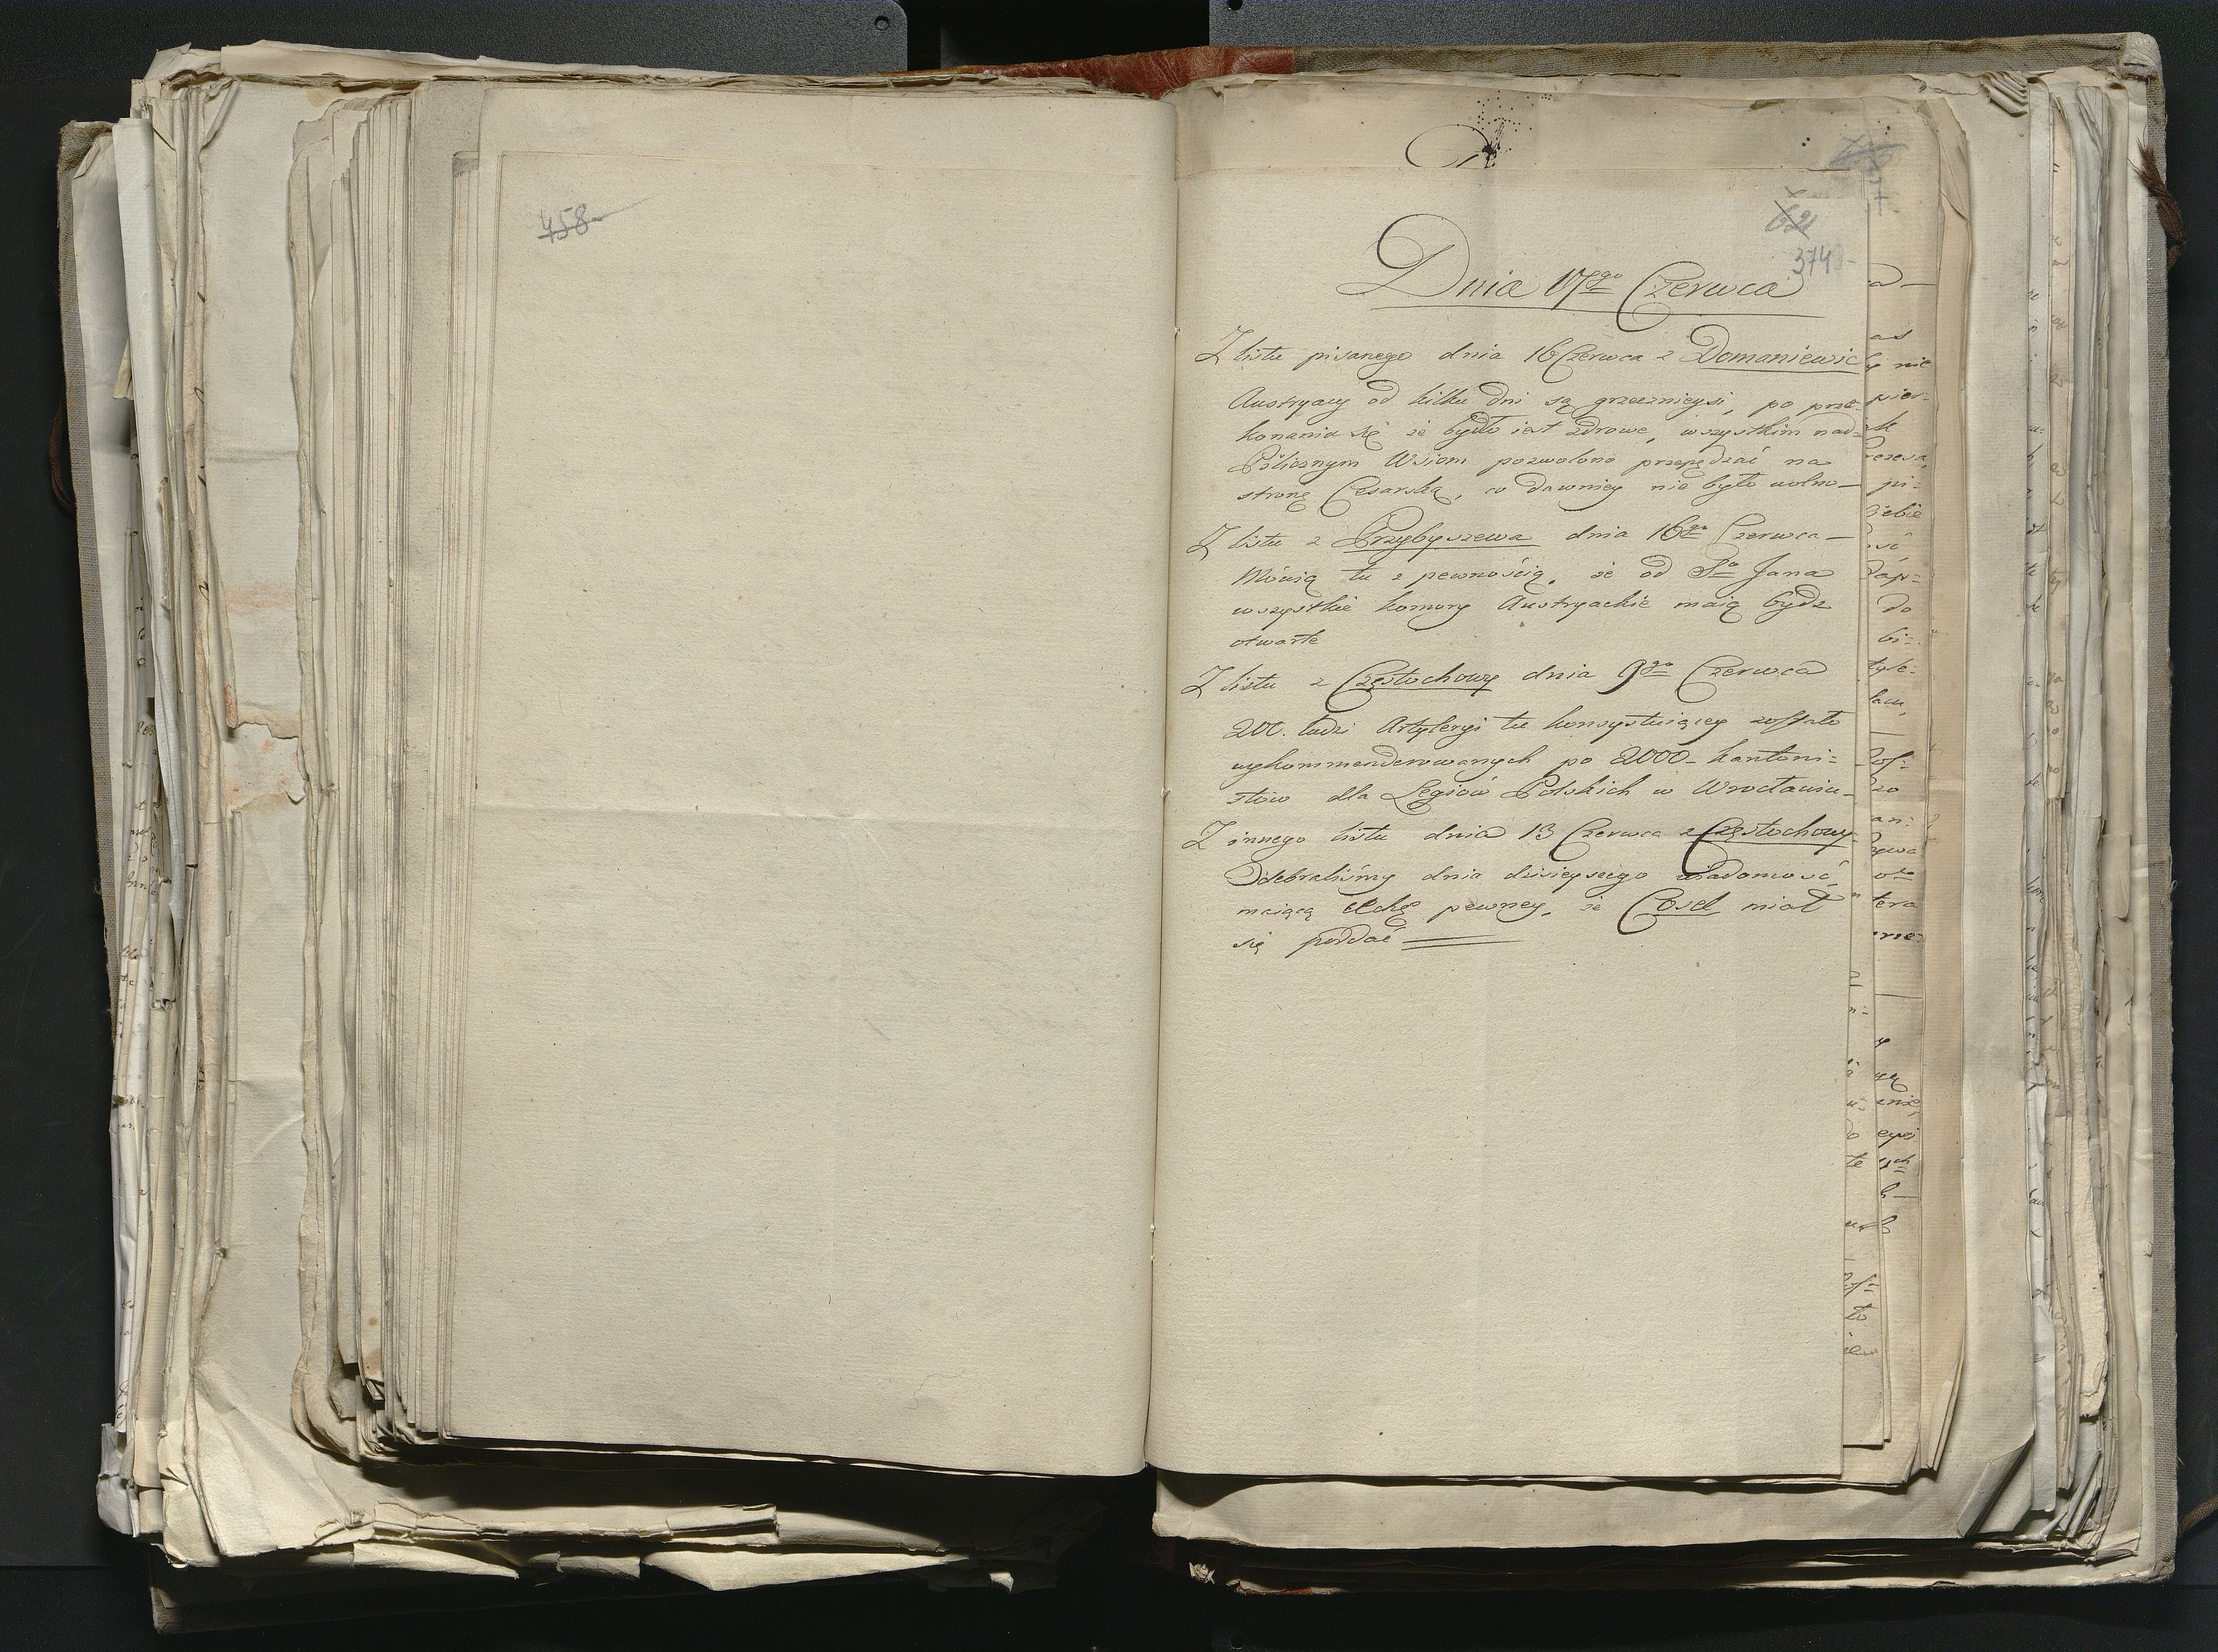 458
621
374
Dnia 17go Czerwca
Z listu pisanego dnia 16 Czerwca z Domaniewic
Austryacy od kilku dni są grzecznieysi, po prze-
konaniu się że bydło iest zdrowe, wszystkim nad=
Pilicznym Wsiom pozwolono przepędzać na
stronę Cesarską, co dawniey nie było wolno —
Z listu z Przybyszewa dnia 16go Czerwca —
Mówią tu z pewnością, że od So Jana
wszystkie komory Austryackie maią bydz
otwarte
Z listu z Częstochowy dnia 9go Czerwca
200. ludzi Artyleryi tu konsystuiącey zostało
wykommenderowanych po 2000 - kantoni=
stów dla Legiów Polskich w Wrocławiu -
Z innego listu dnia 13 Czerwca z Częstochowy
Odebraliśmy dnia dzisieyszego wiadomość,
maiącą cechę pewney, że Cosel miał
się poddać